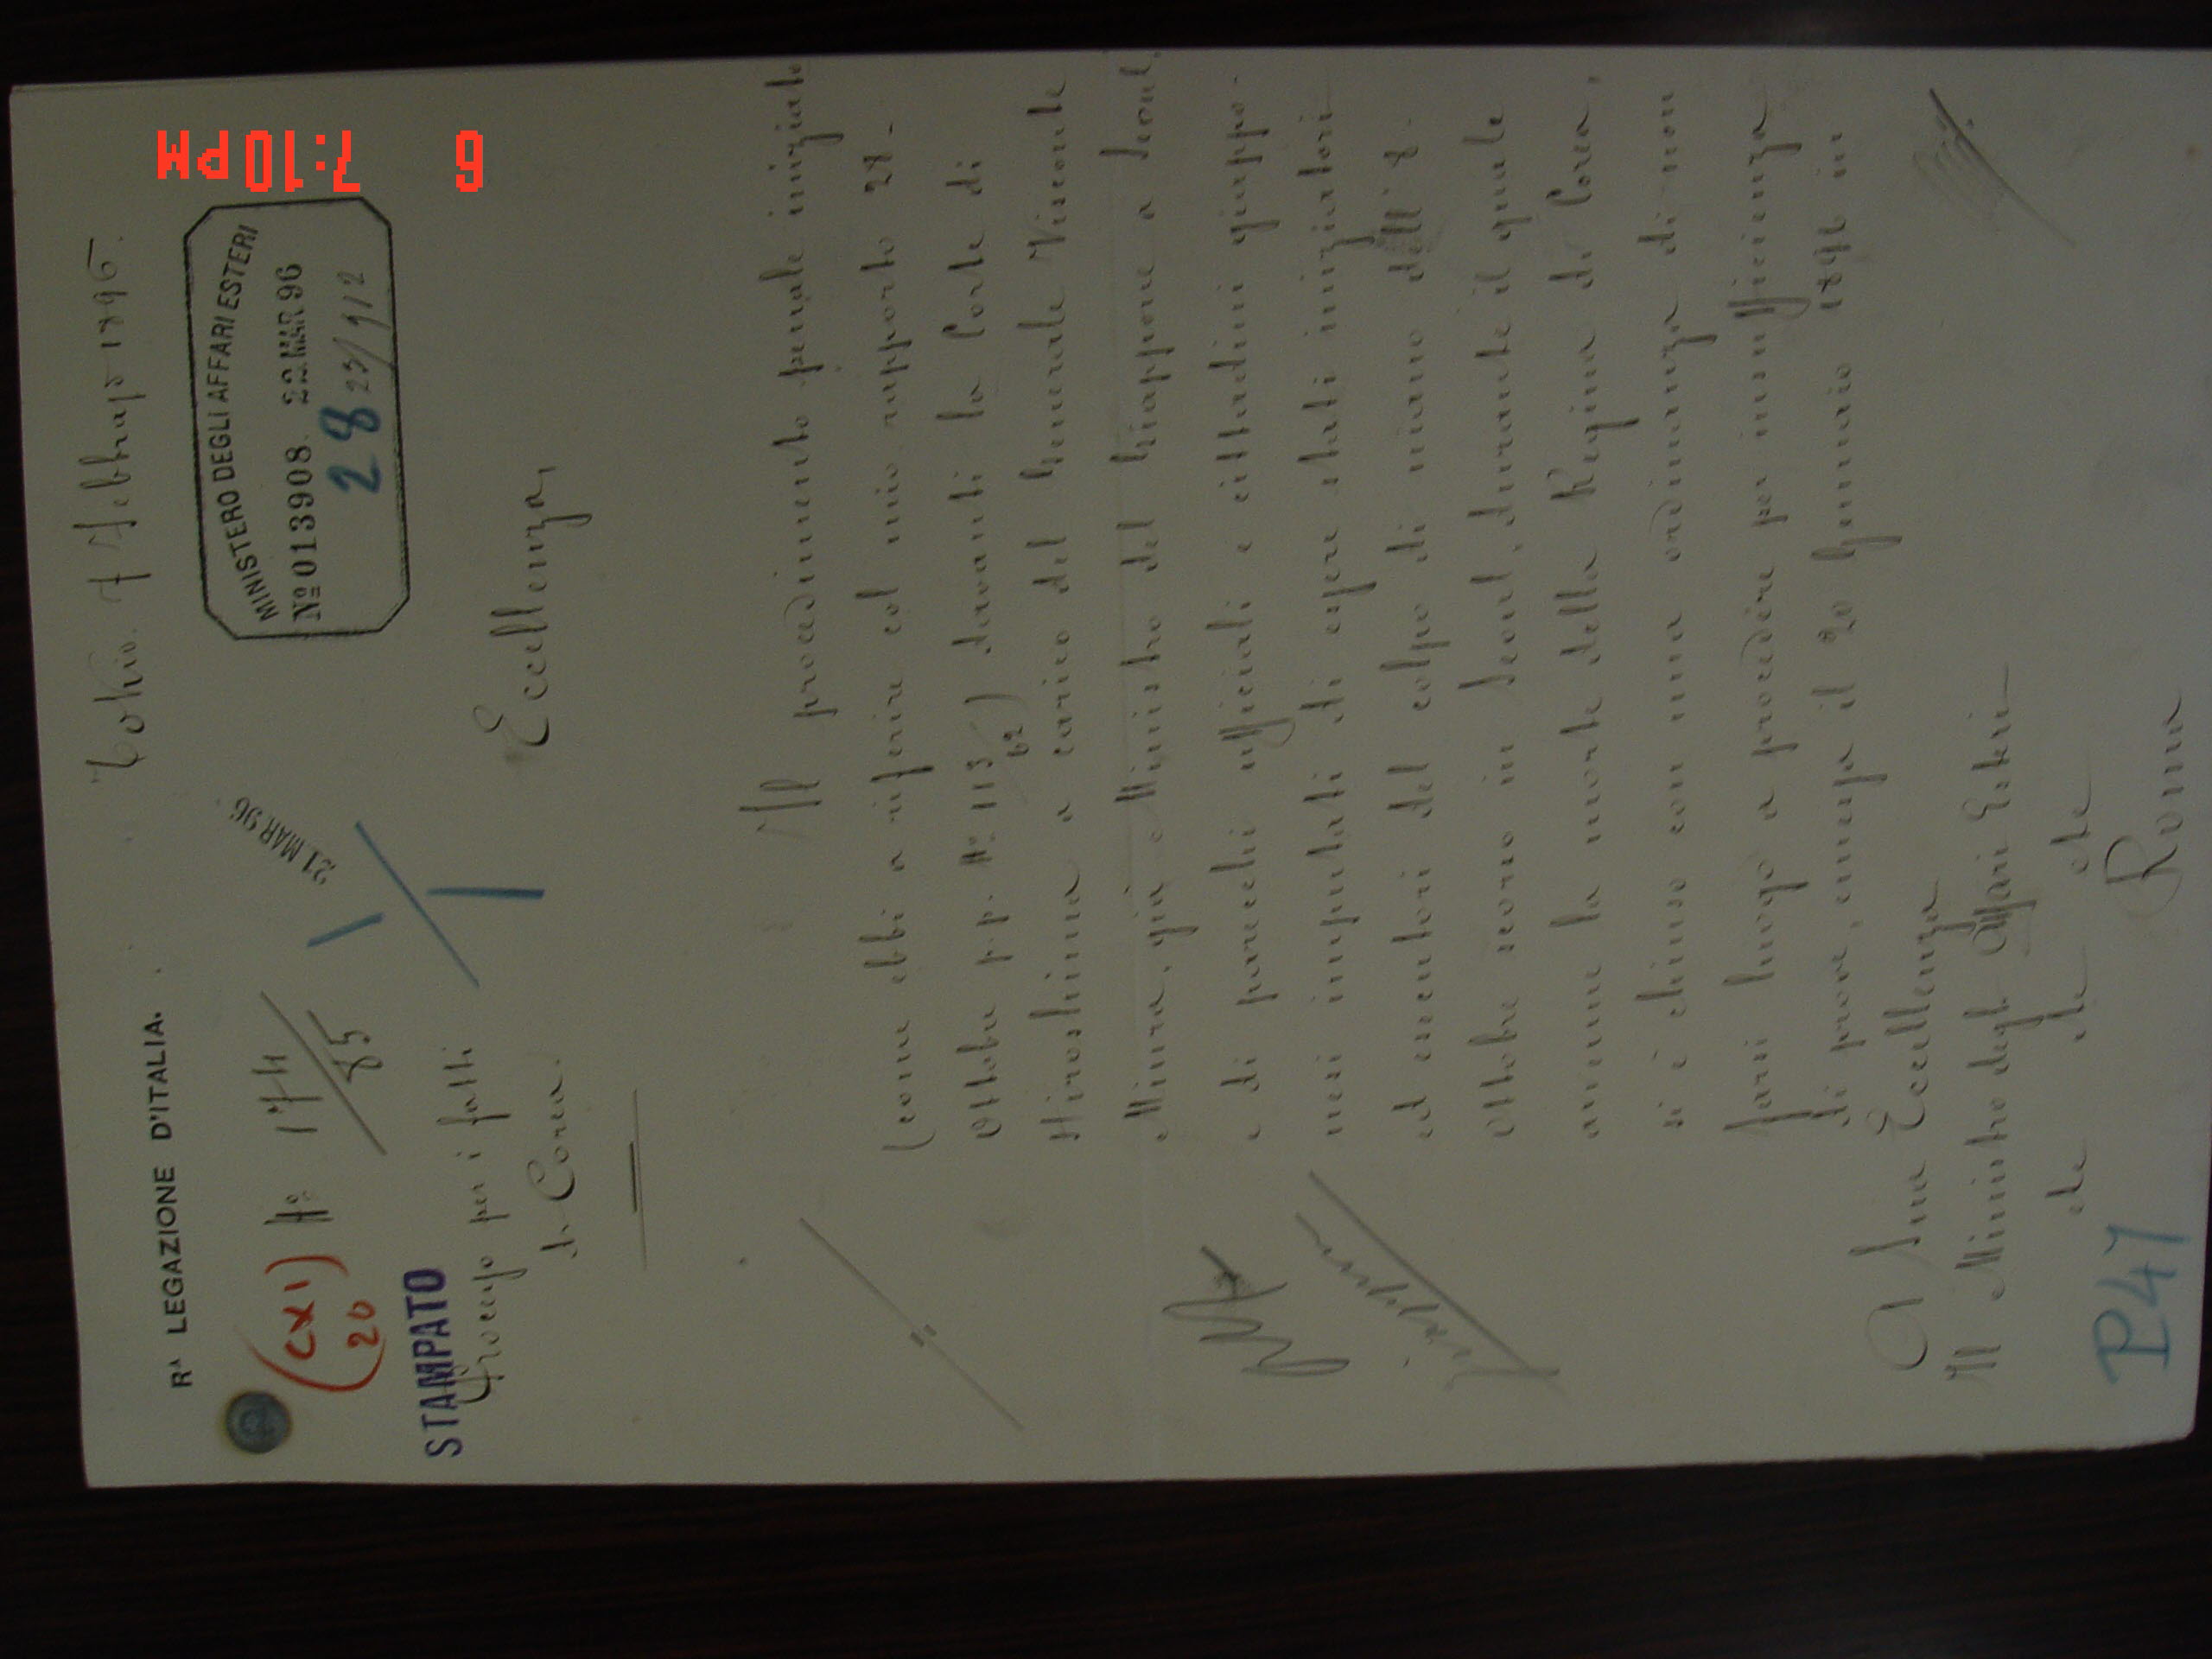 Rᴬ LEGAZIONE D'ITALIA.
Tokio. 7 Febbrajo 1896.
(CXI)
20
N° 174
85
21 MAR 96
MINISTERO DEGLI AFFARI ESTERI
Nº 013908. 22 MAR 96
28 23/912
7:10PM
6
STAMPATO
Processo per i fatti
di Corea.
Eccellenza,
Il procedimento penale iniziato
(come ebbi a riferire col mio rapporto 28
Ottobre p.p. N° 113/62) davanti la Corte di
Hiroshima a carico del Generale Visconte
Miura, già Ministro del Giappone a Seoul,
e di parecchi ufficiali e cittadini giappo-
nesi imputati di essere stati iniziatori
ed esecutori del colpo di mano dell' 8
Ottobre scorso in Seoul, durante il quale
avvenne la morte della Regina di Corea,
si è chiuso con una ordinanza di non
farsi luogo a procedere per insufficienza
di prove, emessa il 20 Gennaio 1896 in
A Sua Eccellenza
Il Ministro degli Affari Esteri
etc etc etc
Roma
P47